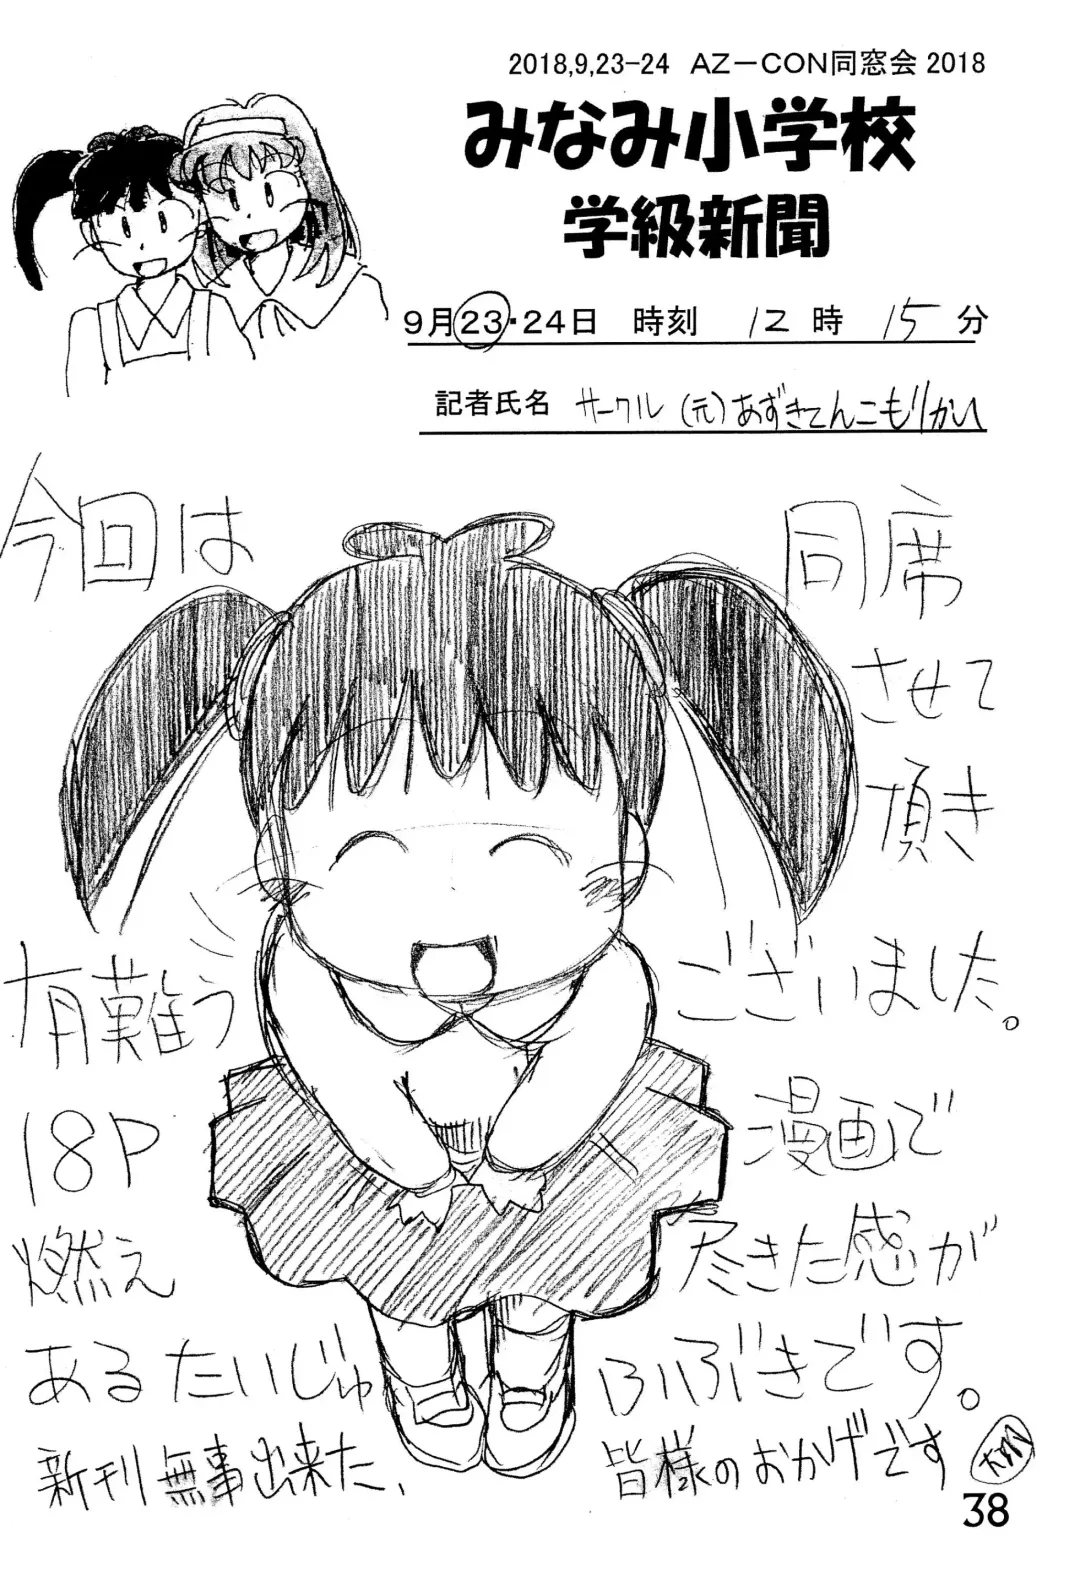 2018,9,23-24 AZ－CON同窓会 2018
みなみ小学校
学級新聞
9月23・24日 時刻 12時 15分
記者氏名 サークル(元)あずきてんこもりかい
今回は 同席
させて
頂き
有難う ございました。
18P 漫画で
燃え 尽きた感が
あるたいじゅ ふぶきです。
新刊無事出来た、 皆様のおかげです
38